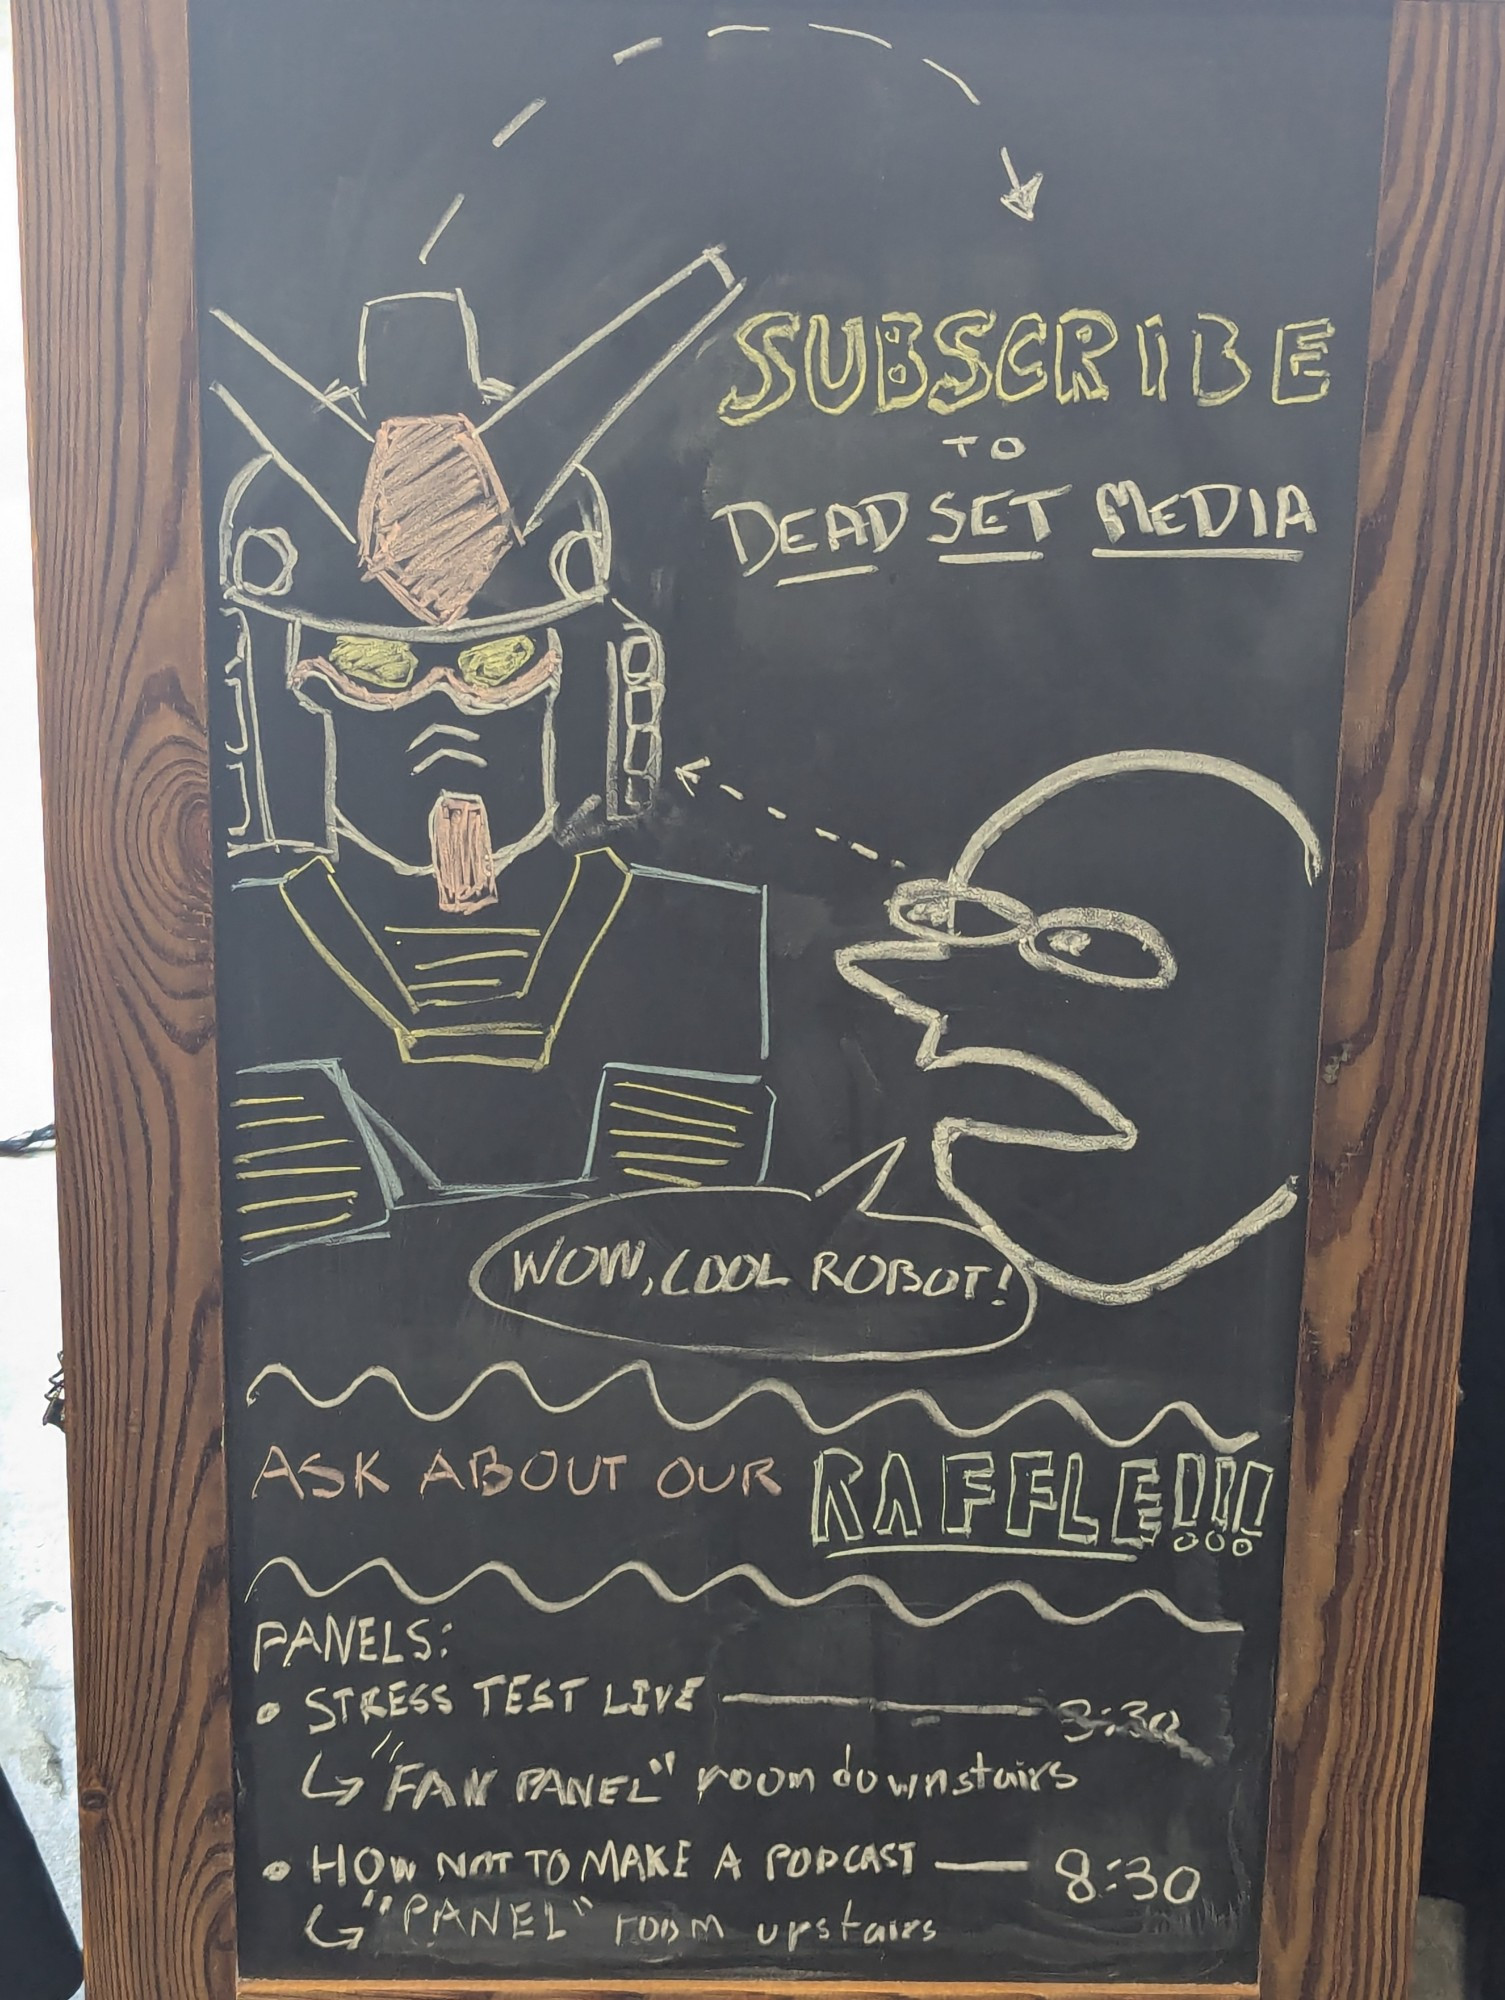 SUBSCRIBE
TO
DEAD SET MEDIA
WOW, COOL ROBOT!
ASK ABOUT OUR RAFFLE!!!
PANELS:
• STRESS TEST LIVE — 3:30
↳ "FAN PANEL" room downstairs
• HOW NOT TO MAKE A PODCAST — 8:30
↳ "PANEL" room upstairs